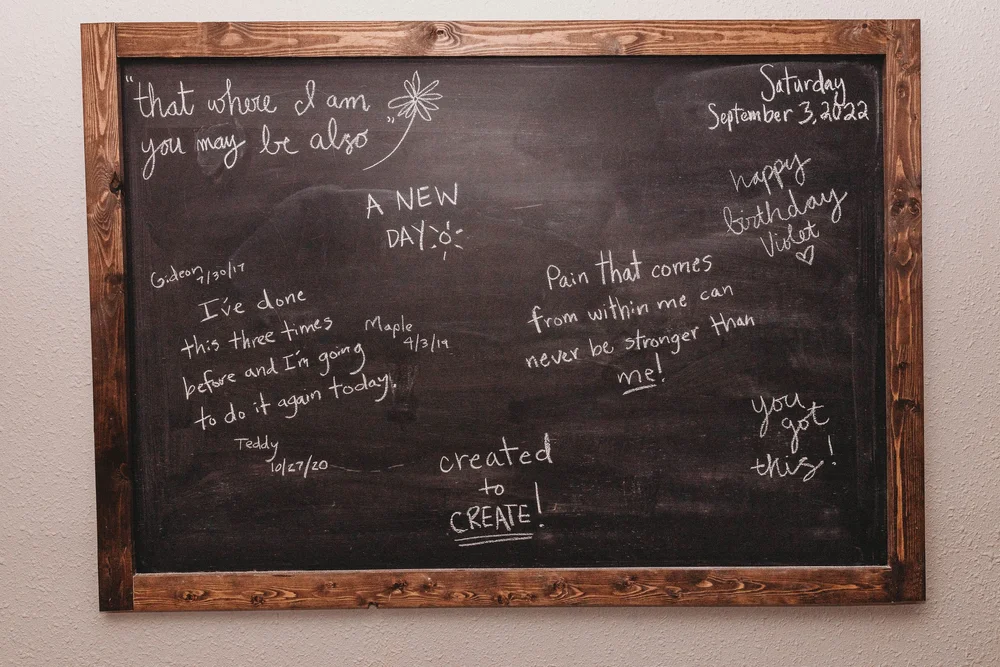 "that where I am
you may be also"
Saturday
September 3, 2022
A NEW
DAY
happy
birthday
Violet
Gideon
7/30/17
I've done
this three times
before and I'm going
to do it again today.
Maple
4/3/19
Teddy
10/27/20
Pain that comes
from within me can
never be stronger than
me!
you
got
this!
created
to
CREATE!